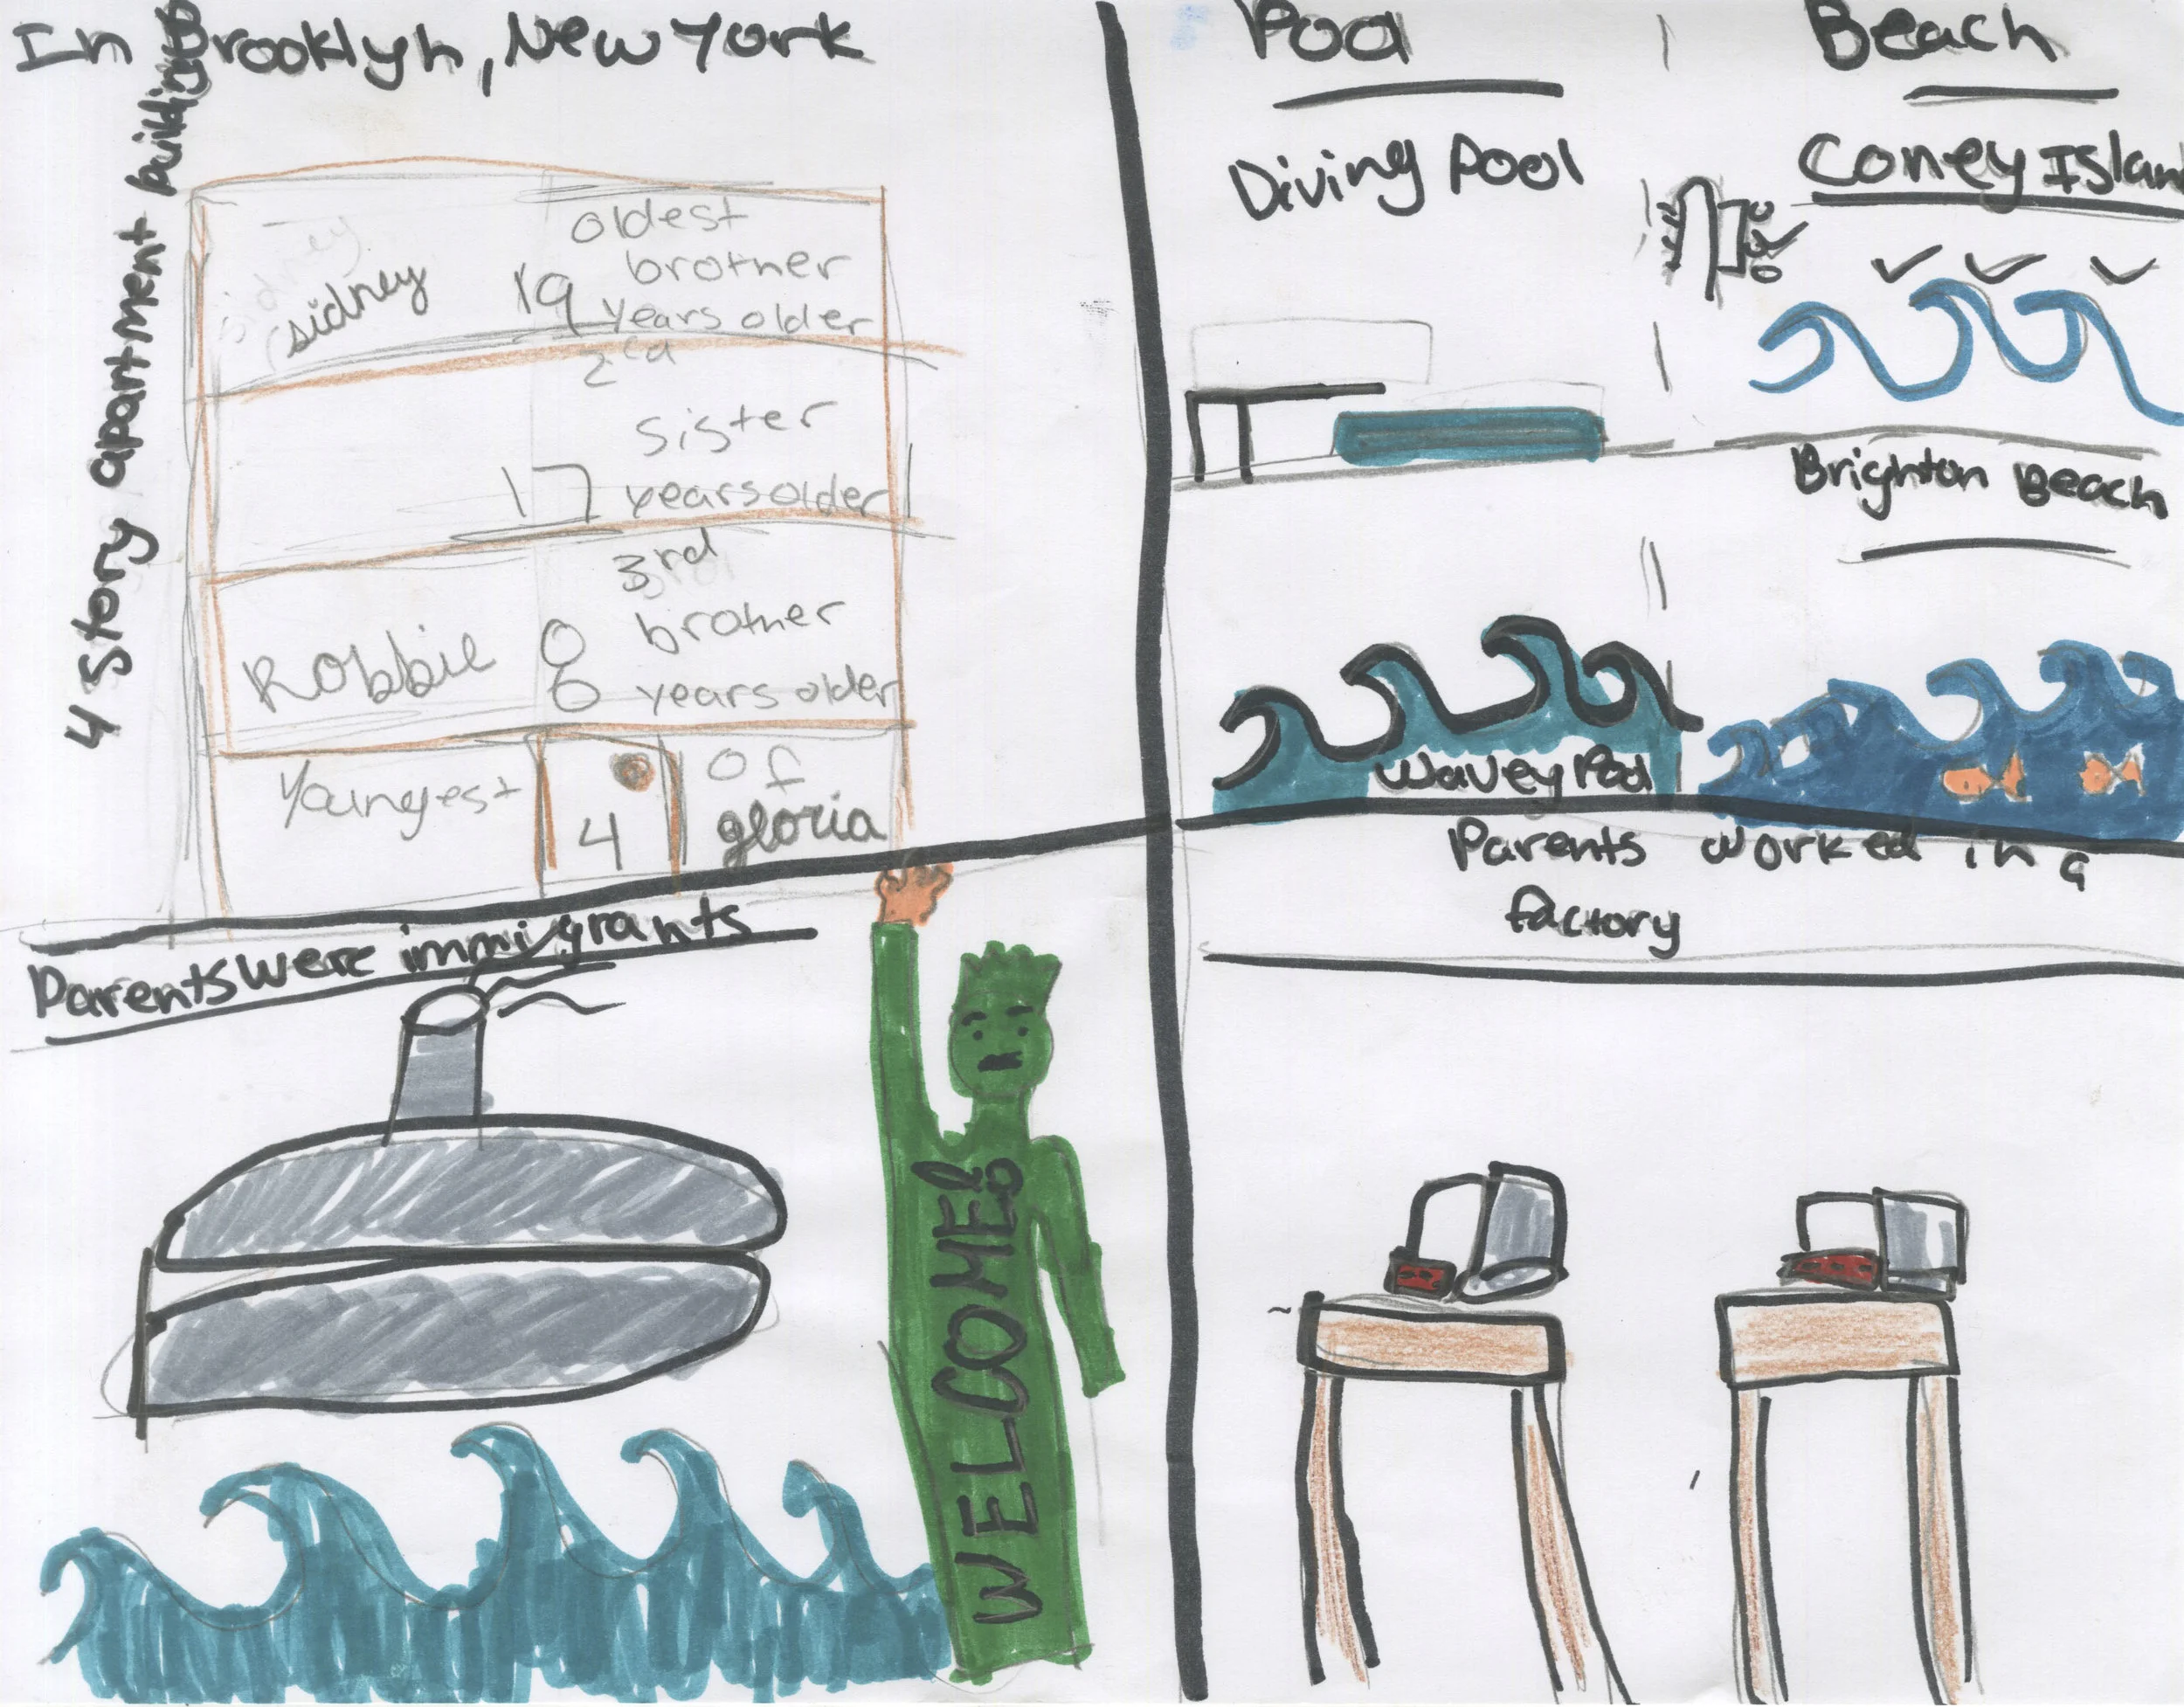 In Brooklyn, New York
4 Story apartment building
oldest
brother
sidney 19 years older
sister
17 years older
3rd
brother
Robbie 8 years older
Youngest 4 of
gloria
Pool
Diving Pool
Wavey Pool
Beach
Coney Island
Brighton Beach
Parents were immigrants
WELCOME!
Parents worked in a
factory